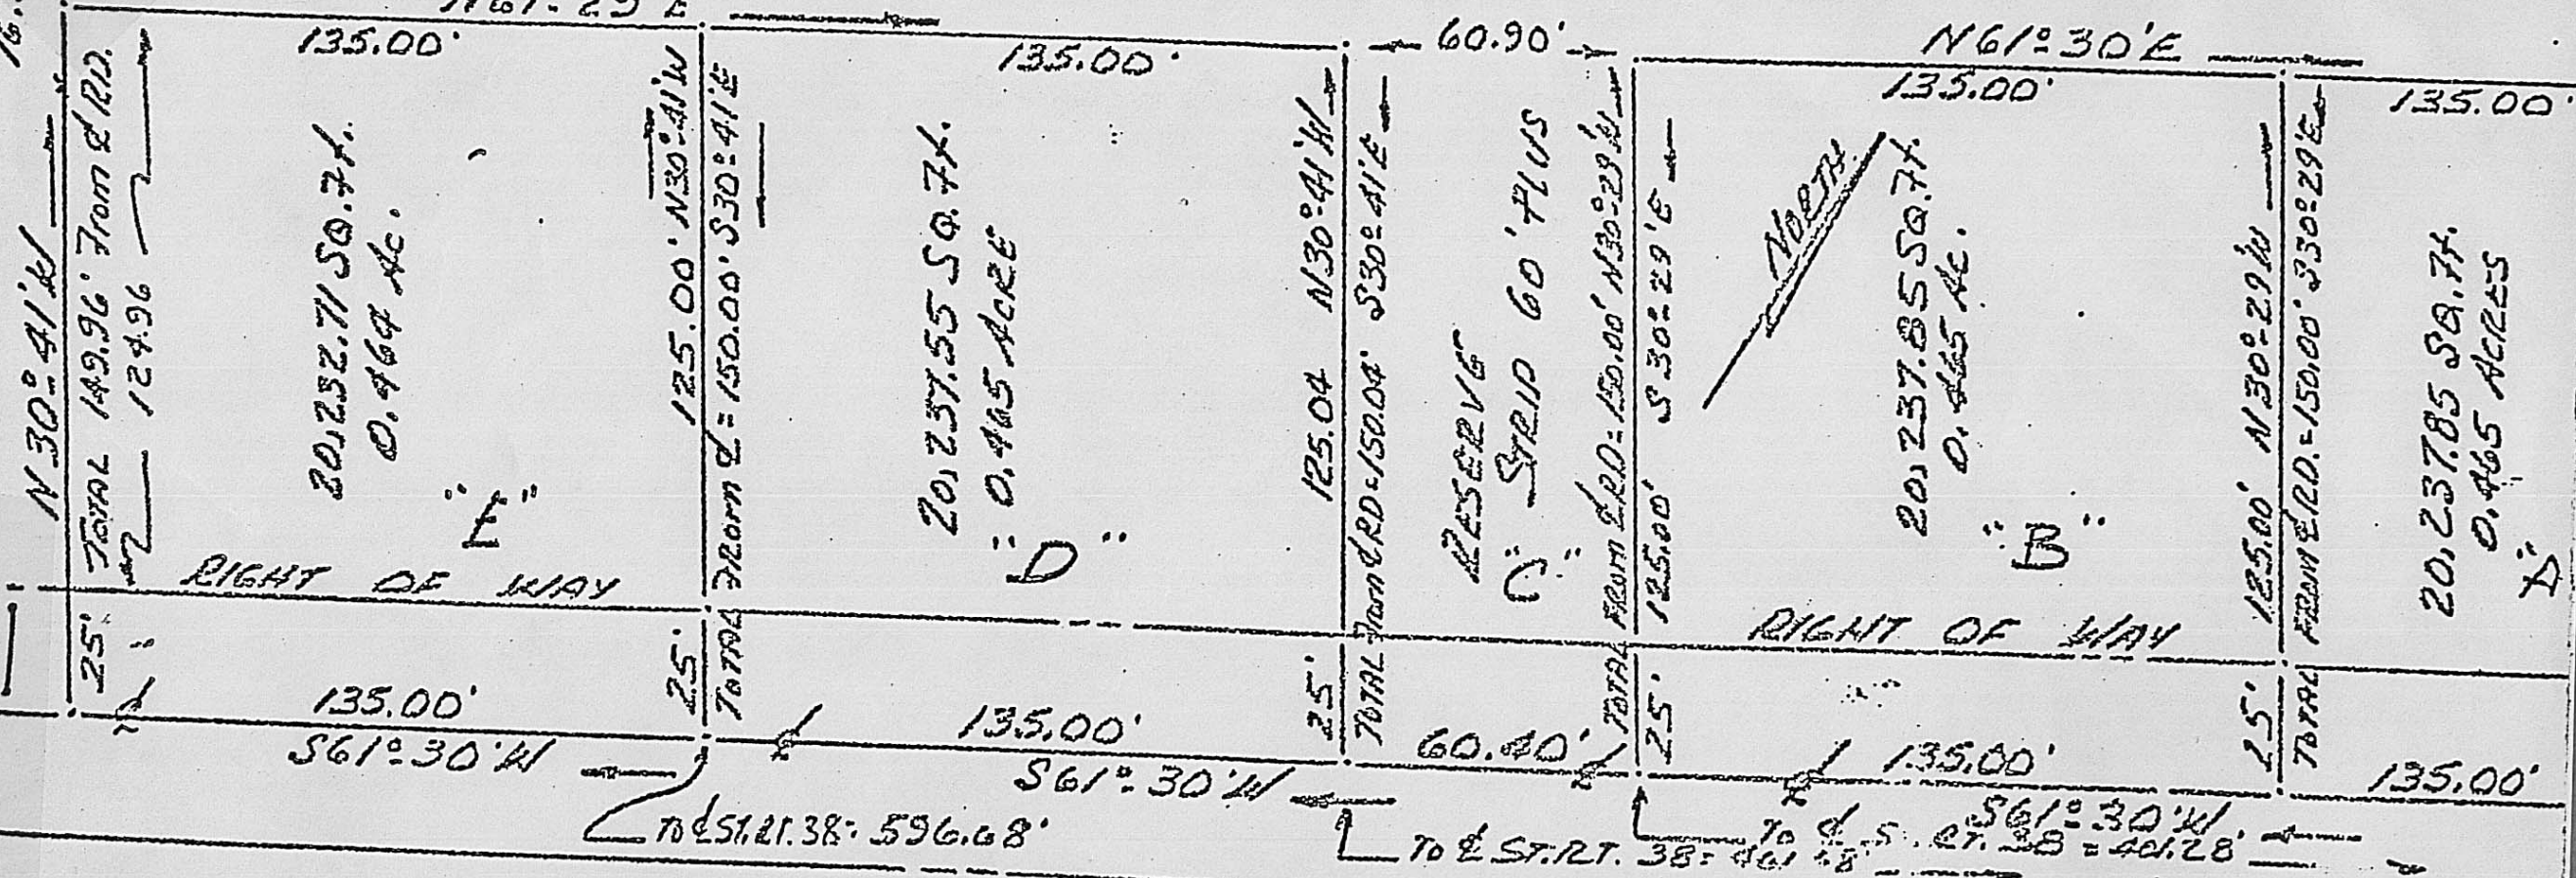 N61°-29'E
N61°30'E
135.00'
135.00'
60.90'
135.00'
135.00'
N30°-41'W
TOTAL 149.96' From ℄ RD.
124.96
20,232.71 SQ.Ft.
0.464 Ac.
"E"
RIGHT OF WAY
125.00' N30°-41'W
TOTAL From ℄ = 150.00' S30°-41'E
20,237.55 SQ.Ft.
0.465 ACRE
"D"
125.04 N30°-41'W
TOTAL From ℄ RD=150.04' S30°-41'E
RESERVE
STRIP 60' PLUS
"C"
TOTAL FROM ℄ RD=150.00' N30°-29'W
125.00' S30°-29'E
NORTH
20,237.85 SQ.Ft.
0.465 Ac.
"B"
RIGHT OF WAY
125.00' N30°-29'W
TOTAL FROM ℄ RD.=150.00' S30°-29'E
20,237.85 SQ.Ft.
0.465 ACRES
25'
25'
25'
25'
25'
℄
135.00'
℄
135.00'
60.40'
℄
℄
135.00'
135.00'
S61°30'W
S61°-30'W
S61°30'W
TO ℄ ST.RT.38= 596.68'
TO ℄ ST.RT. 38=
TO ℄ S. RT. 38 = 401.28'